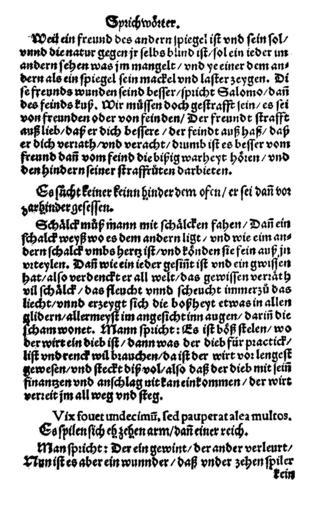 Sprichwörter.
Weil ein freund des andern spiegel ist vnd sein sol/
vnnd die natur gegen jr selbs blind ist/sol ein ieder im
andern sehen was jm mangelt/ vnd ye einer dem an⸗
dern als ein spiegel sein mackel vnd laster zeygen. Di
se freunds wunden seind besser/spricht Salomo/ dañ
des feinds kuß. Wir müssen doch gestrafft sein/es sei
von freunden oder von feinden/ Der freundt strafft
auß lieb/daß er dich bessere/ der feindt auß haß/ daß
er dich veriath/vnd veracht/ diumb ist es besser vom
freund dañ vom feind die bissig warheyt hören/ vnd
den hindern seiner straffrüten darbieten.
Es sücht keiner keinn hinder dem ofen/ er sei dañ vor
zarhinder gesessen.
Schälck müß mann mit schälcken fahen/ Dañ ein
schalck weyßt wo es dem andern ligt/ vnd wie eim an⸗
dern schalck vmbs hertz ist/vnd könden sie fein auß jn
vrteylen. Dañ wie ein ieder gesint ist vnd ein gwissen
hat/also verdenckt er all welt/das gewissen verräth
vil schälck/ das fleucht vnnd scheucht immerzů das
liecht/vnnd erzeygt sich die boßheyt etwas in allen
glidern/allermeyst im angesicht inn augen/ darin die
scham wonet. Mann spricht: Es ist böß stelen/ wo
der wirt ein dieb ist/ dann was der dieb für practick/
list vnd renck wil brauchen/da ist der wirt vorlengest
gewesen/ vnd steckt diß vol/ also daß der dieb mit sein
finanzen vnd anschlag nit kan einkommen/ der wirt
verleit jm all weg vnd steg.
Vix fouet undecimũ, sed pauperat alea multos.
Es spilen sich eh zehen arm/dañ einer reich.
Man spricht: Der ein gewint/ der ander verleurt/
Nun ist es aber ein wunnder/ daß vnder zehen spiler
kein